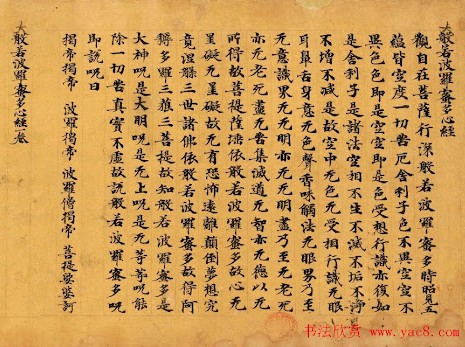 大般若波羅蜜多心經
觀自在菩薩行深般若波羅蜜多時照見五
蘊皆空度一切苦厄舍利子色不異空空不
異色色即是空空即是色受想行識亦復如
是舍利子是諸法空相不生不滅不垢不淨
不增不減是故空中无色无受想行識无眼
耳鼻舌身意无色聲香味觸法无眼界乃至
无意識界无无明亦无无明盡乃至无老死
亦无老死盡无苦集滅道无智亦无得以无
所得故菩提薩埵依般若波羅蜜多故心无
罣礙无罣礙故无有恐怖遠離顛倒夢想究
竟涅槃三世諸佛依般若波羅蜜多故得阿
耨多羅三藐三菩提故知般若波羅蜜多是
大神呪是大明呪是无上呪是无等等呪能
除一切苦真實不虛故說般若波羅蜜多呪
即說呪曰
揭帝揭帝 波羅揭帝 波羅僧揭帝 菩提娑婆訶
大般若波羅蜜多心經一卷
书法欣赏
www.yac8.com